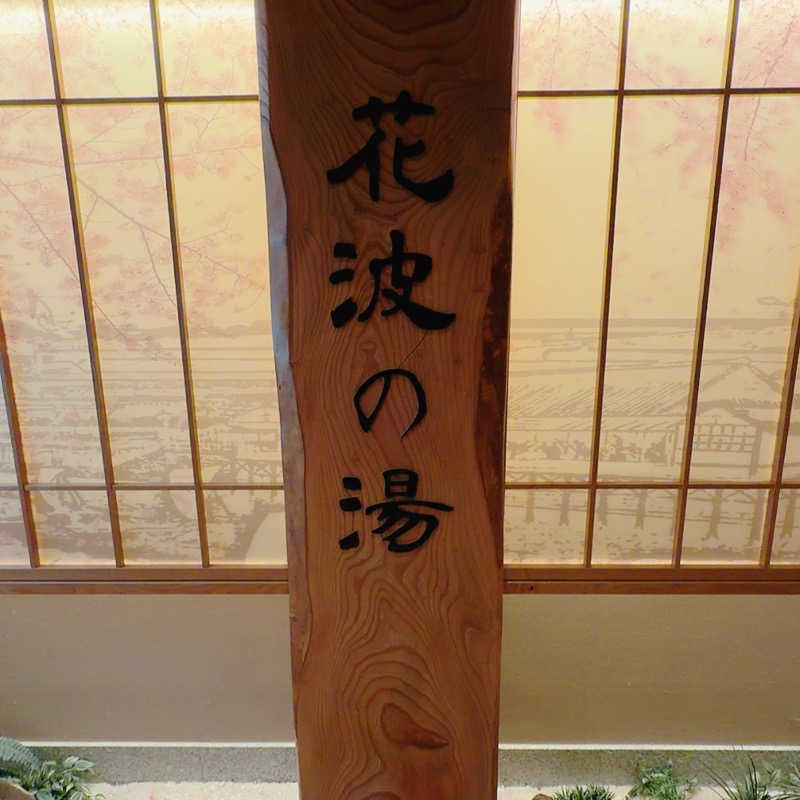 花波の湯